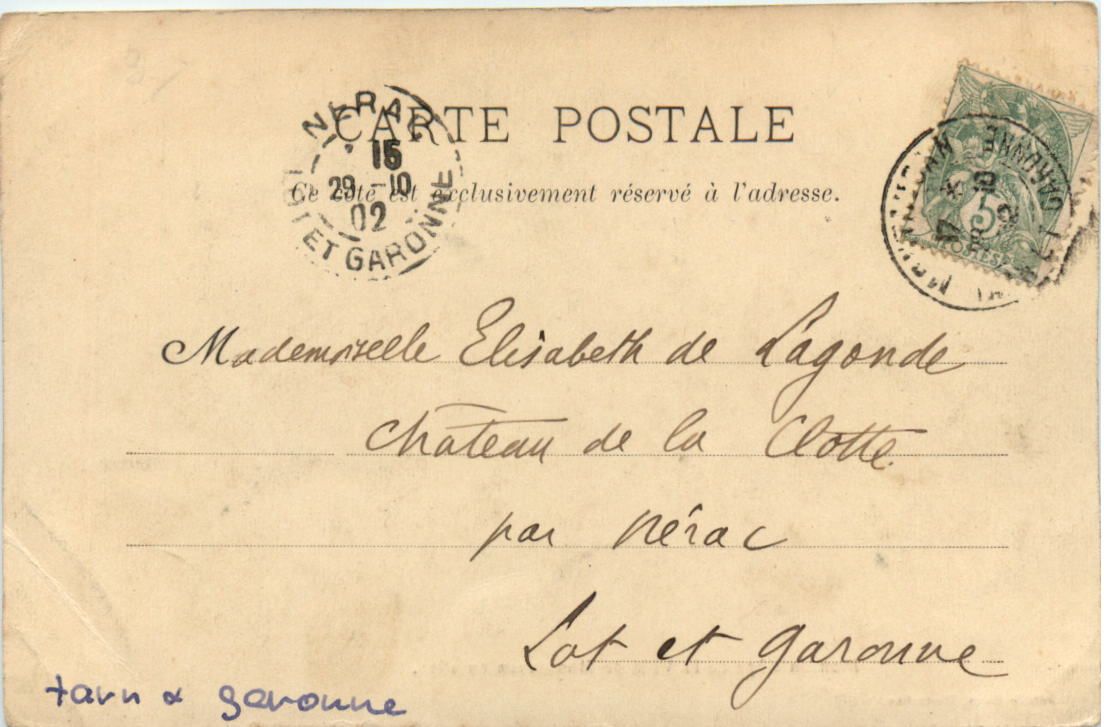 CARTE POSTALE
Ce côté est exclusivement réservé à l'adresse.
NERAC
15
29 -10
02
LOT ET GARONNE
MONTAUBAN
GARONNE
5
POSTES
Mademoiselle Elisabeth de Lagonde
Château de la Clotte
par Nérac
Lot et Garonne
tarn & garonne